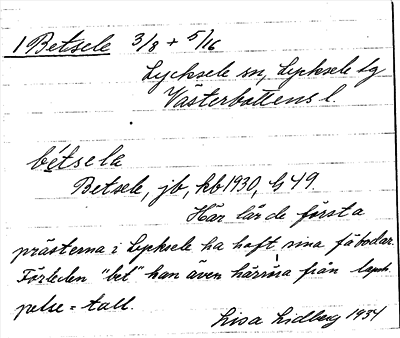 1 Betsele 3/8 + 5/16
Lycksele sn, Lycksele lg
Västerbottens l.
bétsela
Betsele, jb, kb 1930, G 49.
Här lär de första
prästerna i Lycksele ha haft sina fäbodar.
Förleden "bet" kan även härröra från lapsk.
pelse = tall.
Lisa Lidberg 1934